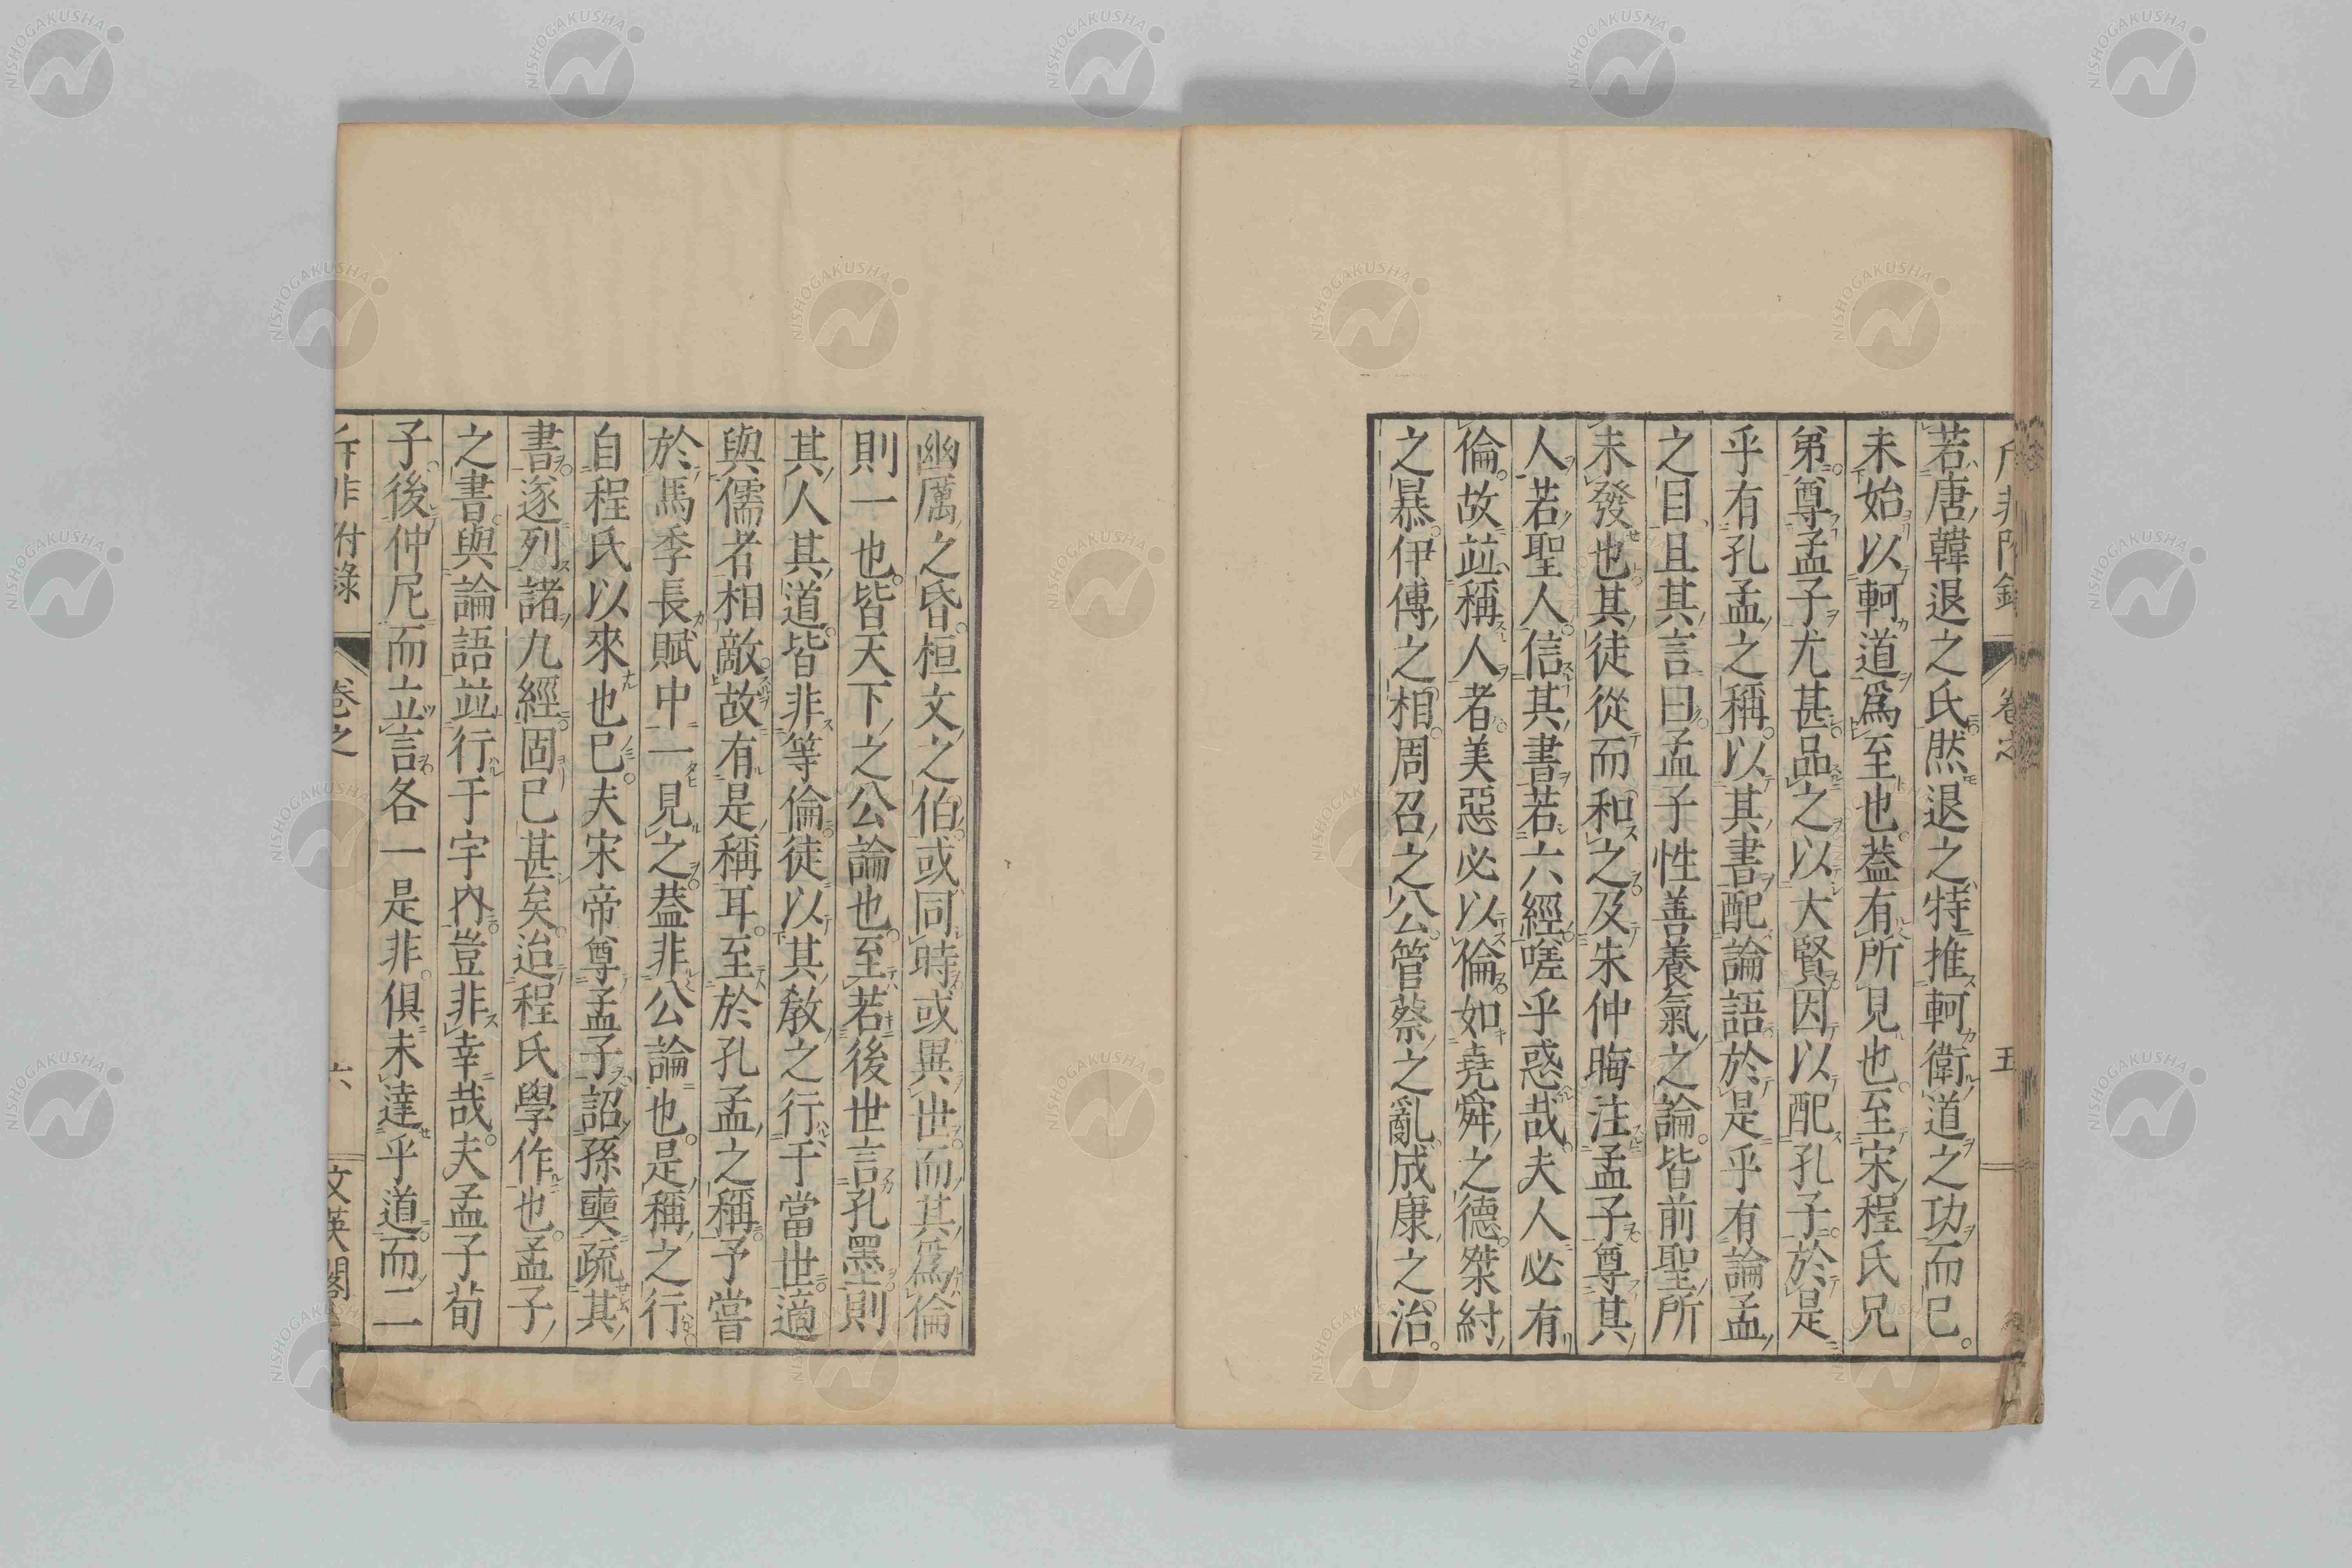 若唐韓退之氏然退之特推軻衛道之功而已
未始以軻道爲至也葢有所見也至宋程氏兄
弟尊孟子尤甚品之以大賢因以配孔子於是
乎有孔孟之稱以其書配論語於是乎有論孟
之目且其言曰孟子性善養氣之論皆前聖所
未發也其徒從而和之及朱仲晦注孟子尊其
人若聖人信其書若六經嗟乎惑哉夫人必有
倫故並稱人者美惡必以倫如堯舜之德桀紂
之暴伊傅之相周召之公管蔡之亂成康之治
幽厲之昏桓文之伯或同時或異世而其爲倫
則一也皆天下之公論也至若後世言孔墨則
其人其道皆非等倫徒以其教之行于當世適
與儒者相敵故有是稱耳至於孔孟之稱予嘗
於馬季長賦中一見之葢非公論也是稱之行
自程氏以來也已夫宋帝尊孟子詔孫奭疏其
書遂列諸九經固已甚矣迨程氏學作也孟子
之書與論語並行于宇內豈非幸哉夫孟子荀
子後仲尼而立言各一是非俱未達乎道而二
斥非附錄 卷之 六 文英閣
斥非附錄 卷之 五
NISHOGAKUSHA